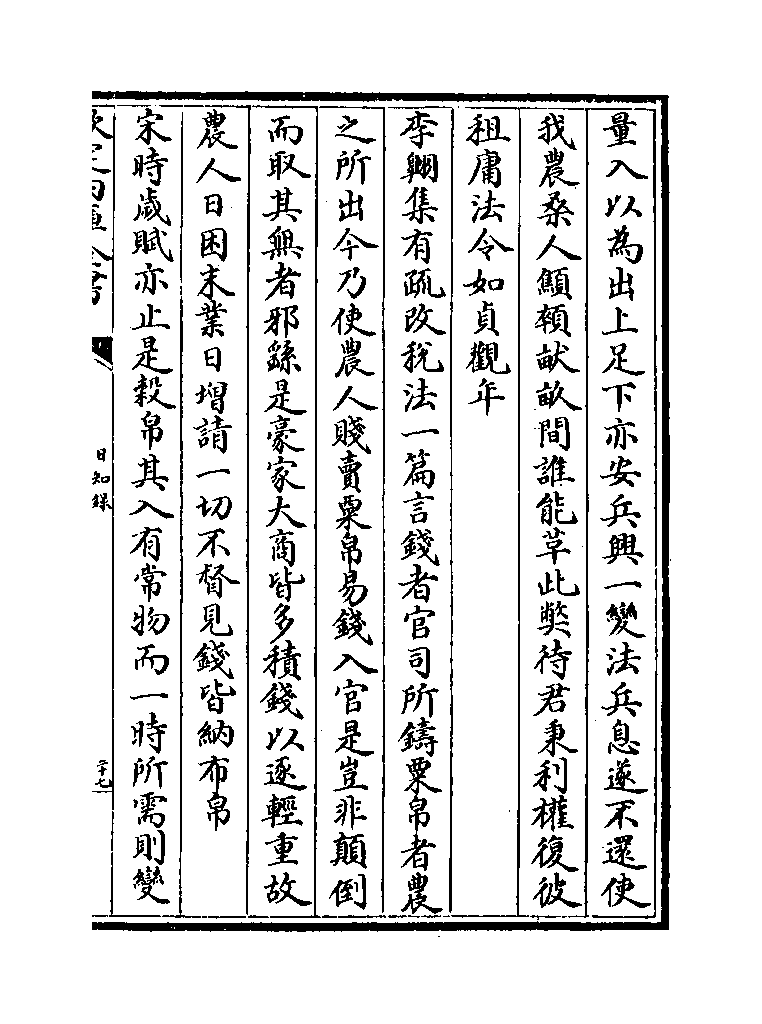 量入以為出上足下亦安兵興一變法兵息遂不還使
我農桑人顦顇畎畝間誰能革此弊待君秉利權復彼
租庸法令如貞觀年
李翺集有疏改税法一篇言錢者官司所鑄粟帛者農
之所出今乃使農人賤賣粟帛易錢入官是豈非顛倒
而取其無者邪繇是豪家大商皆多積錢以逐輕重故
農人日困末業日增請一切不督見錢皆納布帛
宋時歲賦亦止是穀帛其入有常物而一時所需則變
欽定四庫全書
日知錄
二十七